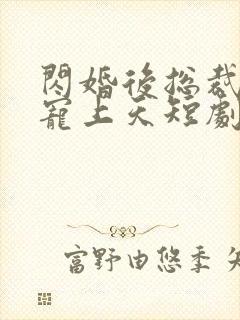 閃婚後总裁
寵上天短劇
富野由悠季